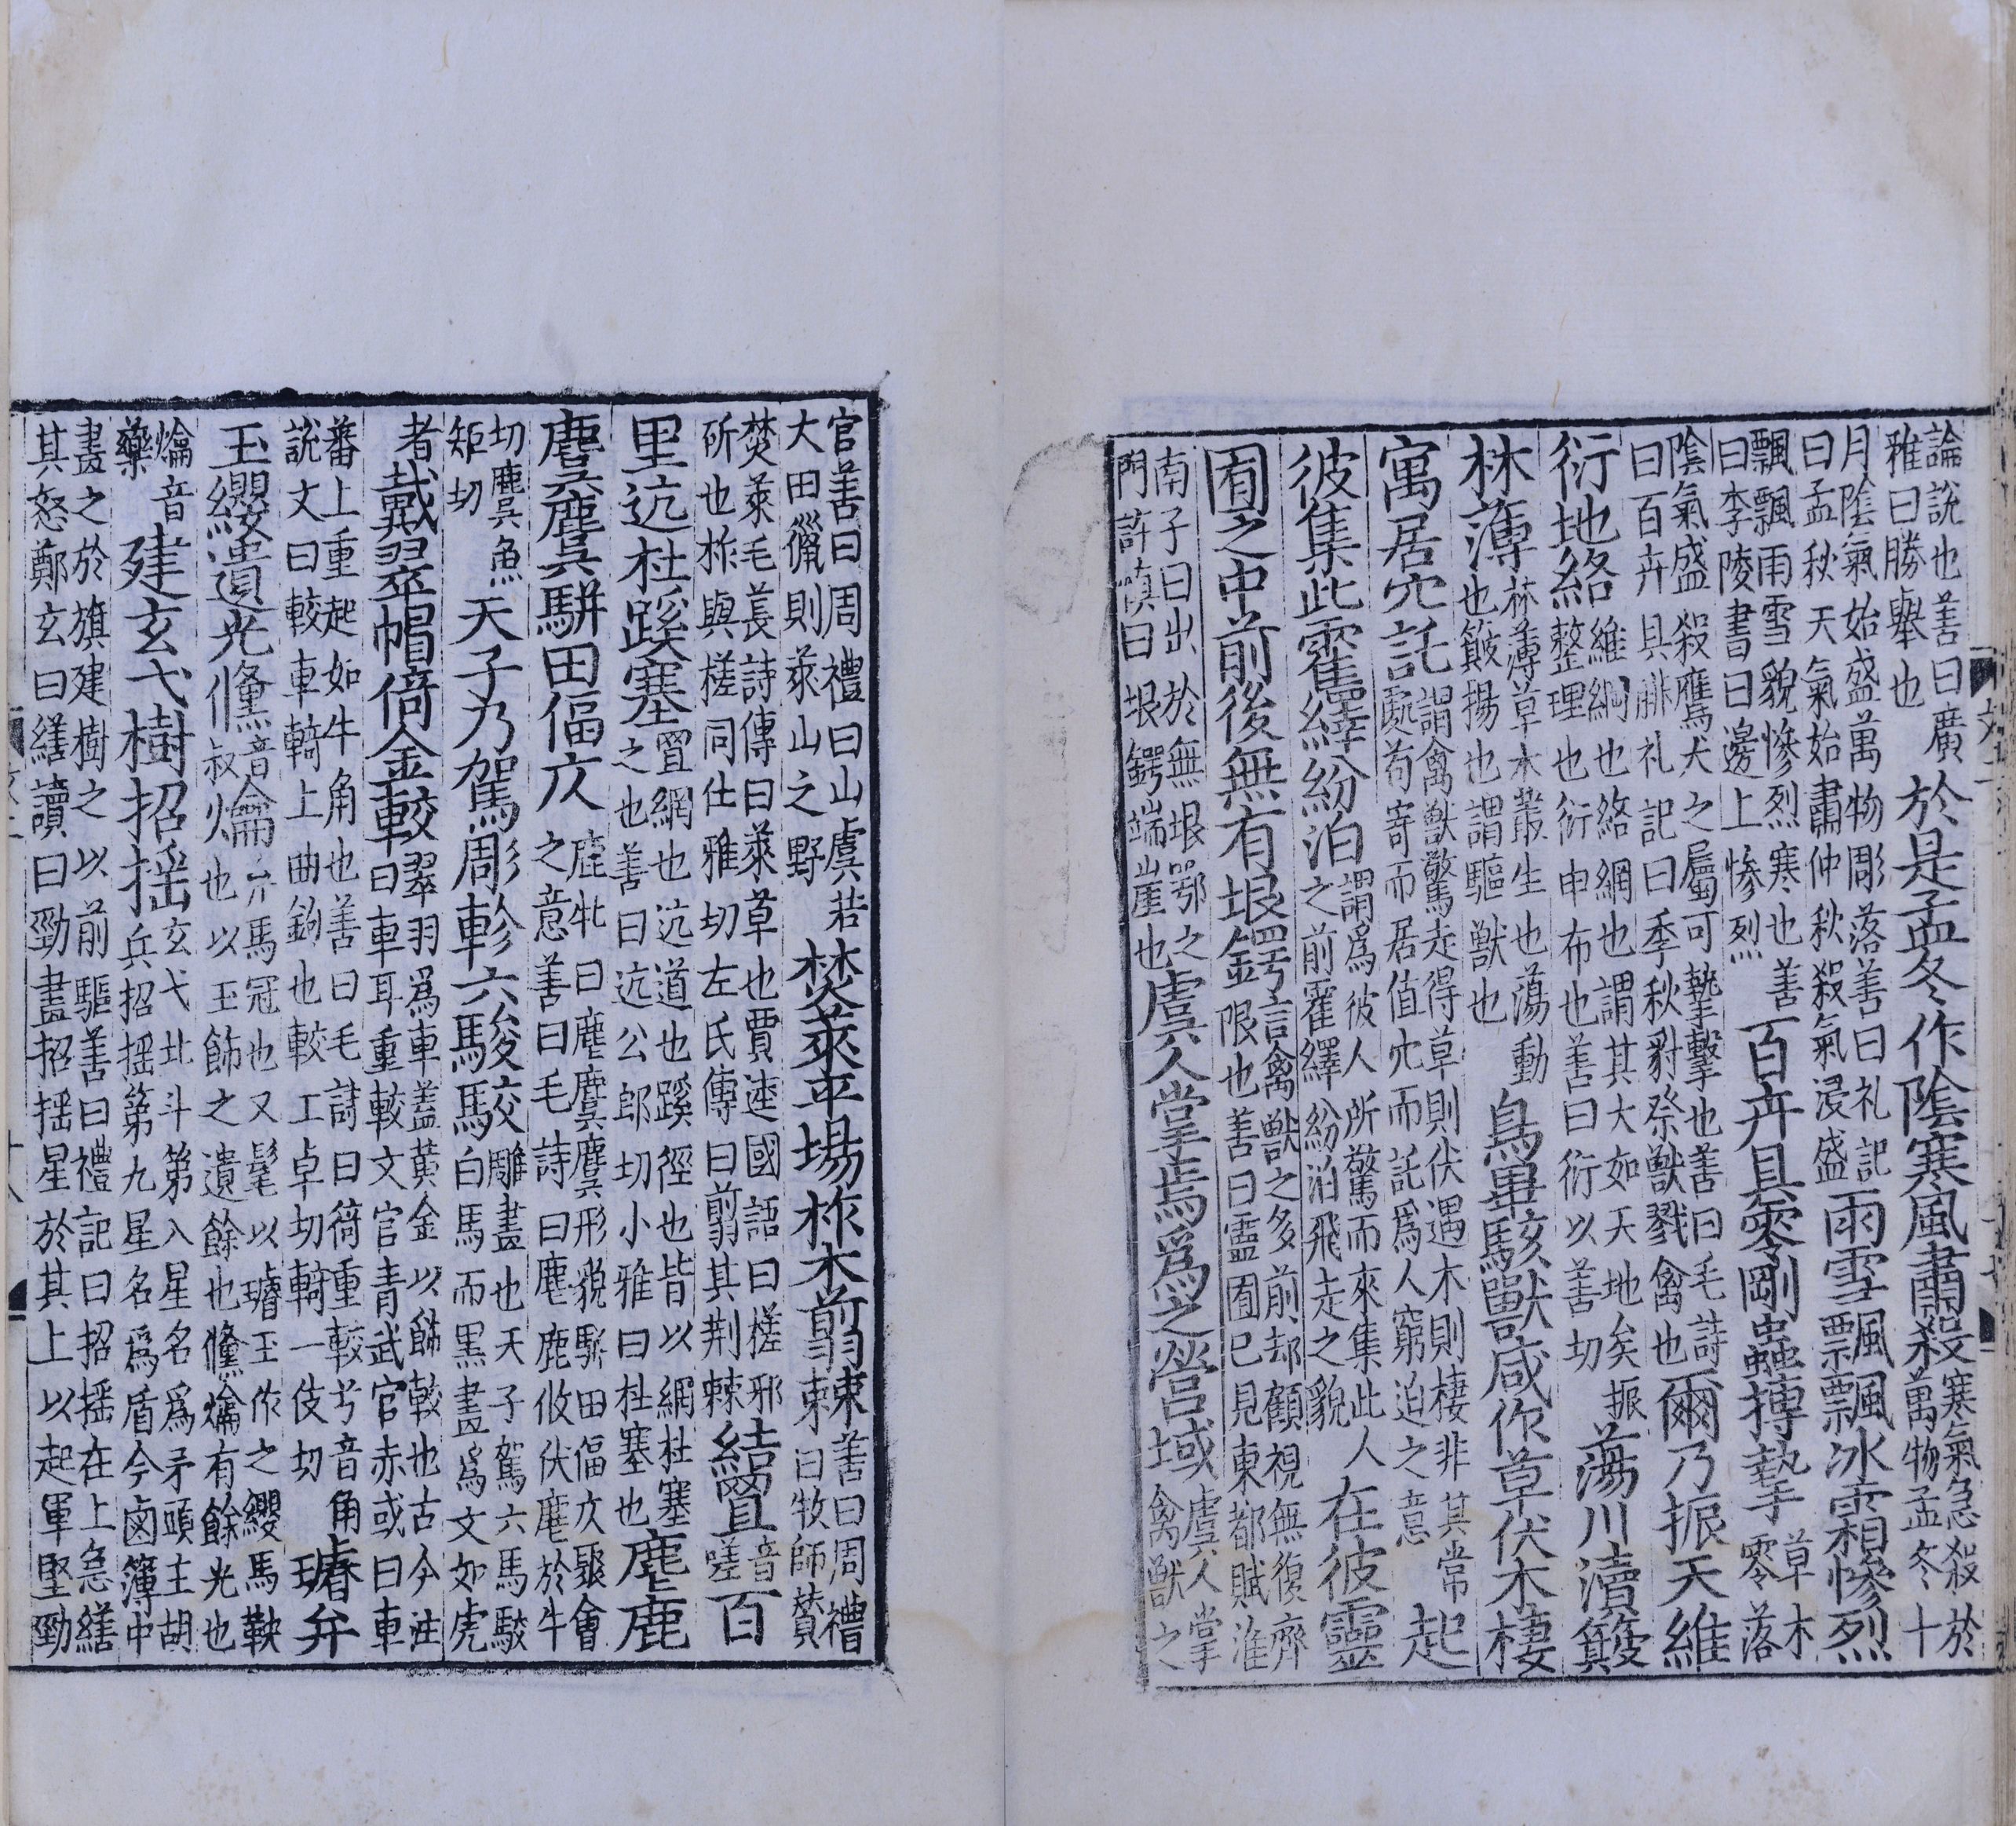 論說也善曰廣雅曰勝舉也於是孟冬作陰寒風肅殺寒氣急殺於萬物孟冬十
月陰氣始盛萬物彫落善曰礼記曰孟秋天氣始肅仲秋殺氣浸盛雨雪飄飄冰霜慘烈
飄飄雨雪貌慘烈寒也善曰李陵書曰邊上慘烈百卉具零剛蟲搏摯草木零落
陰氣盛殺鷹犬之屬可摯擊也善曰毛詩曰百卉具腓礼記曰季秋豺祭獸戮禽也爾乃振天維
衍地絡維綱也絡網也謂其大如天地矣振整理也衍申布也善曰衍以善切蕩川瀆簸
林薄林薄草木叢生也蕩動也簸揚也謂驅獸也鳥畢駭獸咸作草伏木棲
寓居穴託謂禽獸驚走得草則伏遇木則棲非其常處苟寄而居值穴而託爲人窮迫之意起
彼集此霍繹紛泊謂爲彼人所驚而來集此人之前霍繹紛泊飛走之貌在彼靈
囿之中前後無有垠鍔言禽獸之多前却顧視無復齊限也善曰靈囿已見東都賦淮
南子曰出於無垠咢之門許慎曰垠鍔端崖也虞人掌焉爲之營域虞人掌禽獸之
官善曰周禮曰山虞若大田獵則萊山之野焚萊平場柞木翦棘善曰周禮曰牧師贊
焚萊毛萇詩傳曰萊草也賈逵國語曰槎邪斫也柞與槎同仕雅切左氏傳曰翦其荆棘結罝音嗟百
里迒杜蹊塞罝網也迒道也蹊徑也皆以網杜塞之也善曰迒公郎切小雅曰杜塞也麀鹿
麌麌駢田偪仄鹿牝曰麀麌麌形貌駢田偪仄聚會之意善曰毛詩曰麀鹿攸伏麀於牛
切麌魚矩切天子乃駕彫軫六駿駮雕畫也天子駕六馬駮白馬而黑畫爲文如虎
者戴翠帽倚金較翠羽爲車蓋黄金以飾較也古今注曰車耳重較文官青武官赤或曰車
蕃上重起如牛角也善曰毛詩曰猗重較兮音角說文曰較車輢上曲鉤也較工卓切輢一伎切璿弁
玉纓遺光儵音叔爚弁馬冠也又髦以璿玉作之纓馬鞅也以玉飾之遺餘也儵爚有餘光也
爚音藥建玄弋樹招摇玄弋北斗第八星名爲矛頭主胡兵招摇第九星名爲盾今鹵簿中
畫之於旗建樹之以前驅善曰禮記曰招摇在上急繕其怒鄭玄曰繕讀曰勁畫招摇星於其上以起軍堅勁